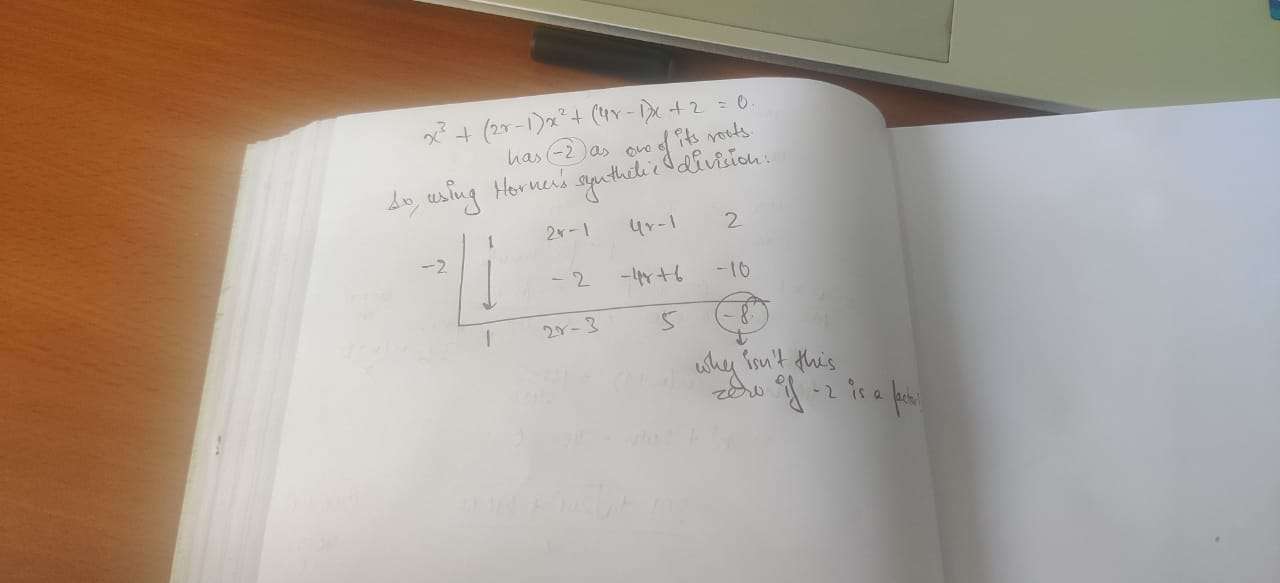 x³ + (2r-1)x² + (4r-1)x + 2 = 0.
has -2 as one of its roots.
So, using Horner's synthetic division:
-2 | 1 2r-1 4r-1 2
-2 -4r+6 -10
1 2r-3 5 -8
why isn't this
zero if -2 is a factor